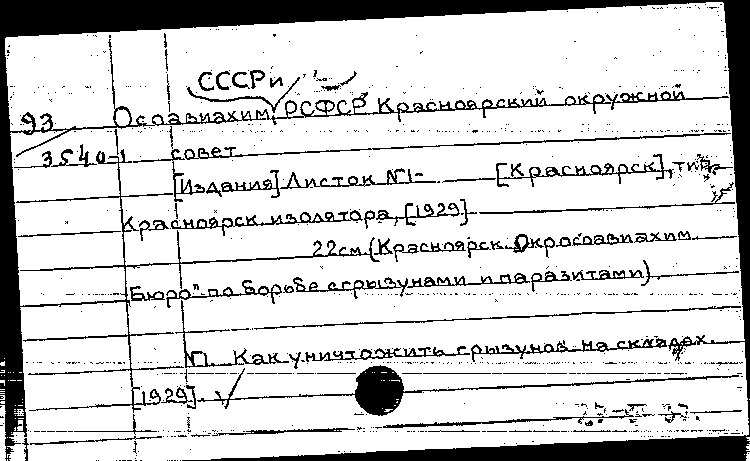 СССР и
93 Осоавиахим, РСФСР Красноярский окружной
3540-1 совет
[Издания] Листок №1- [Красноярск], тип.
Красноярск. изолятора, [1929]
22 см. (Красноярск. Окросоавиахим.
Бюро" по борьбе с грызунами и паразитами).
№1. Как уничтожить грызунов на складах.
[1929]. √